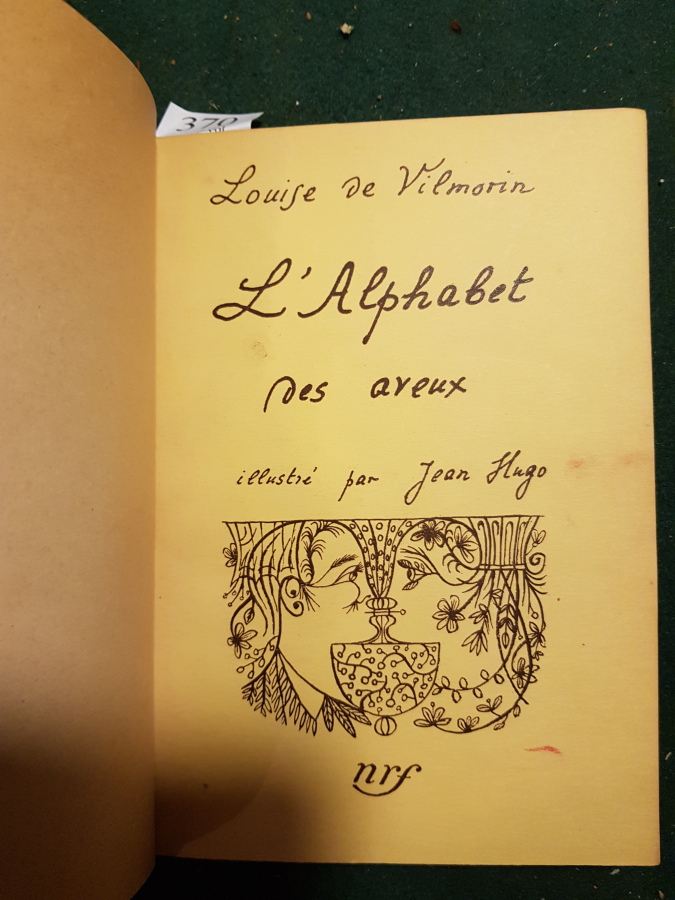 379
Louise de Vilmorin
L'Alphabet
des aveux
illustré par Jean Hugo
nrf